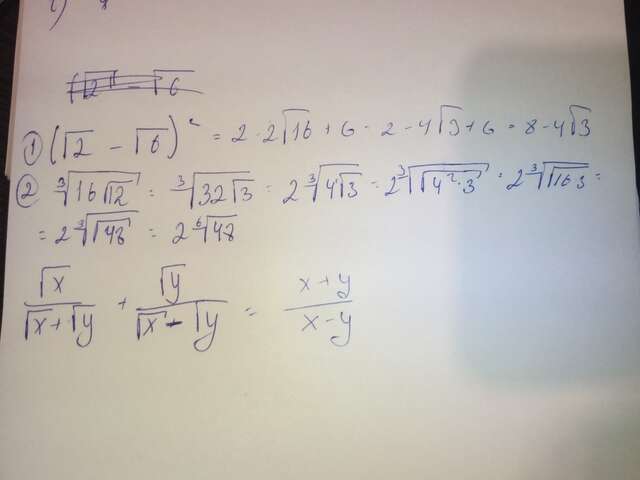 √2 - √6
1) (√2 - √6)² = 2 - 2√16 + 6 = 2 - 4√3 + 6 = 8 - 4√3
2) ∛(16√12) = ∛(32√3) = 2∛(4√3) = 2∛(√(4²·3)) = 2∛(√(16 3)) =
= 2∛(√48) = 2⁶√48
√x/(√x + √y) + √y/(√x - √y) = (x + y)/(x - y)